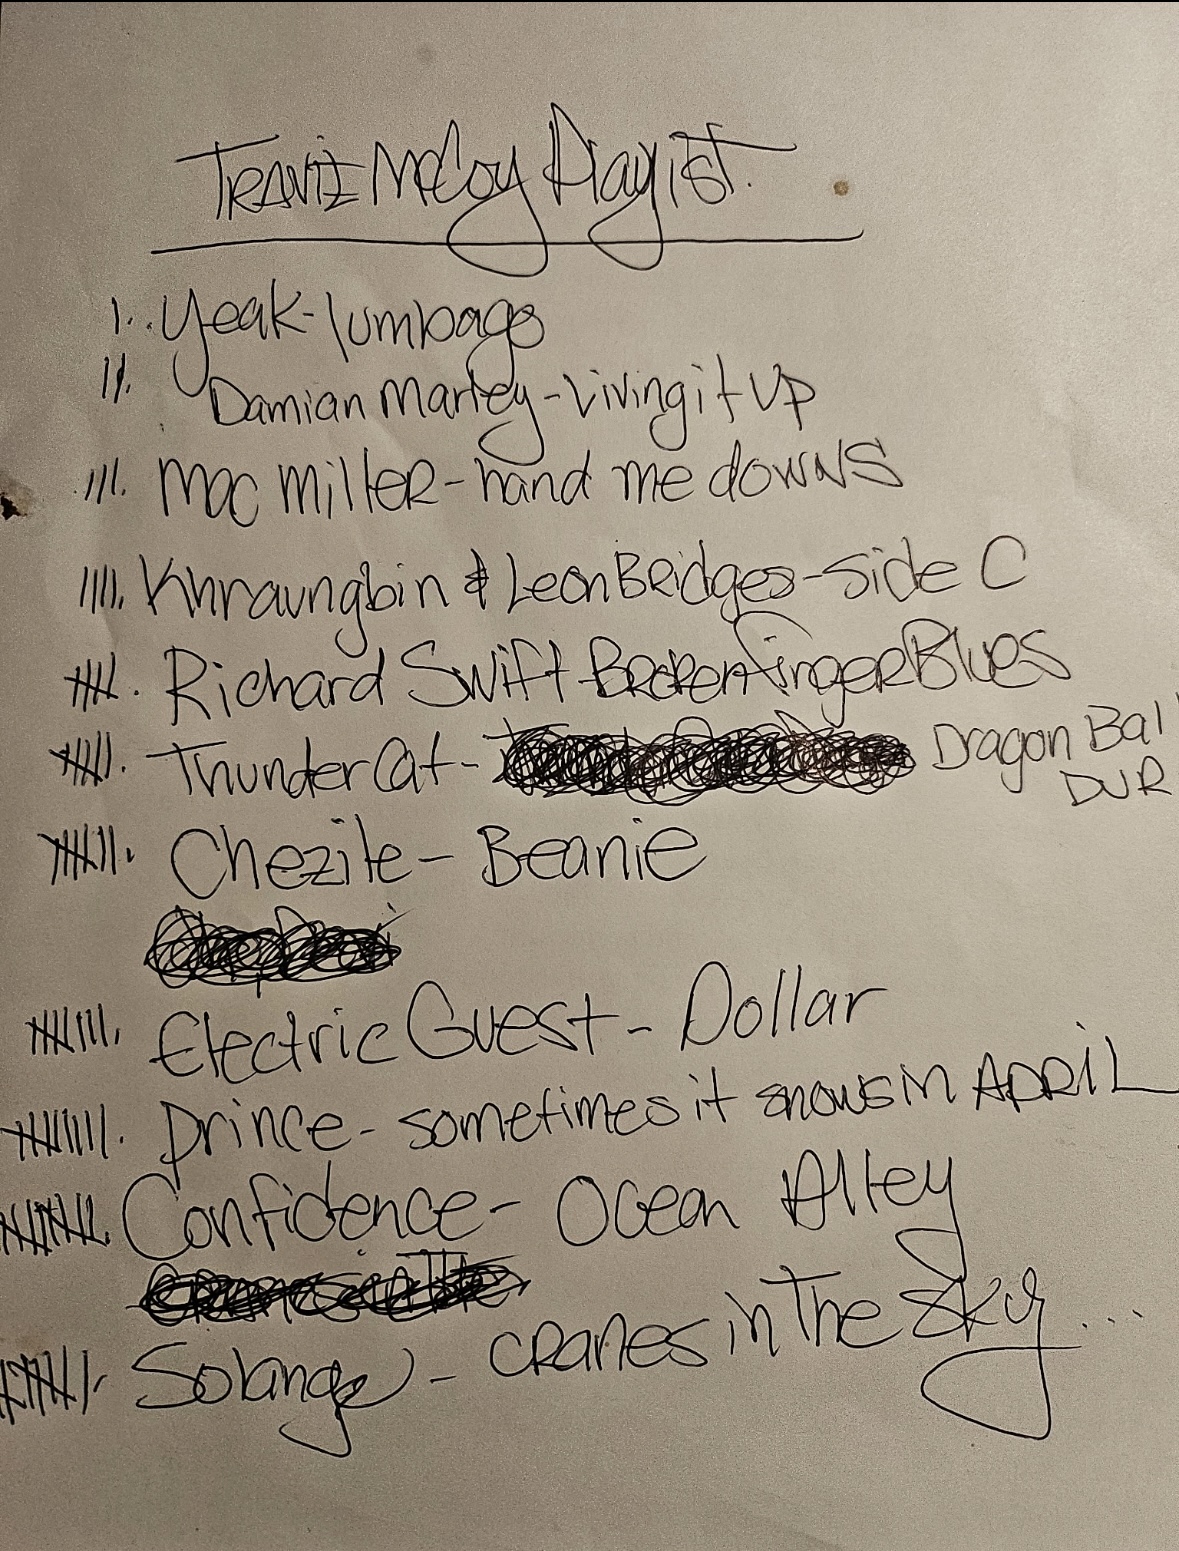 Travie McCoy Playlist.
I. Yeak - lumbago
II. Damian Marley - Living it up
III. Mac Miller - hand me downs
IIII. Khraungbin & Leon Bridges - Side C
IIIII. Richard Swift - Brokenfinger Blues
IIIIII. ThunderCat - Dragon Ball
DUR
IIIIIII. Chezile - Beanie
IIIIIIII. Electric Guest - Dollar
IIIIIIIII. Prince - sometimes it snows in APRIL
IIIIIIIIII. Confidence - Ocean Alley
Solange - cranes in The Sky...